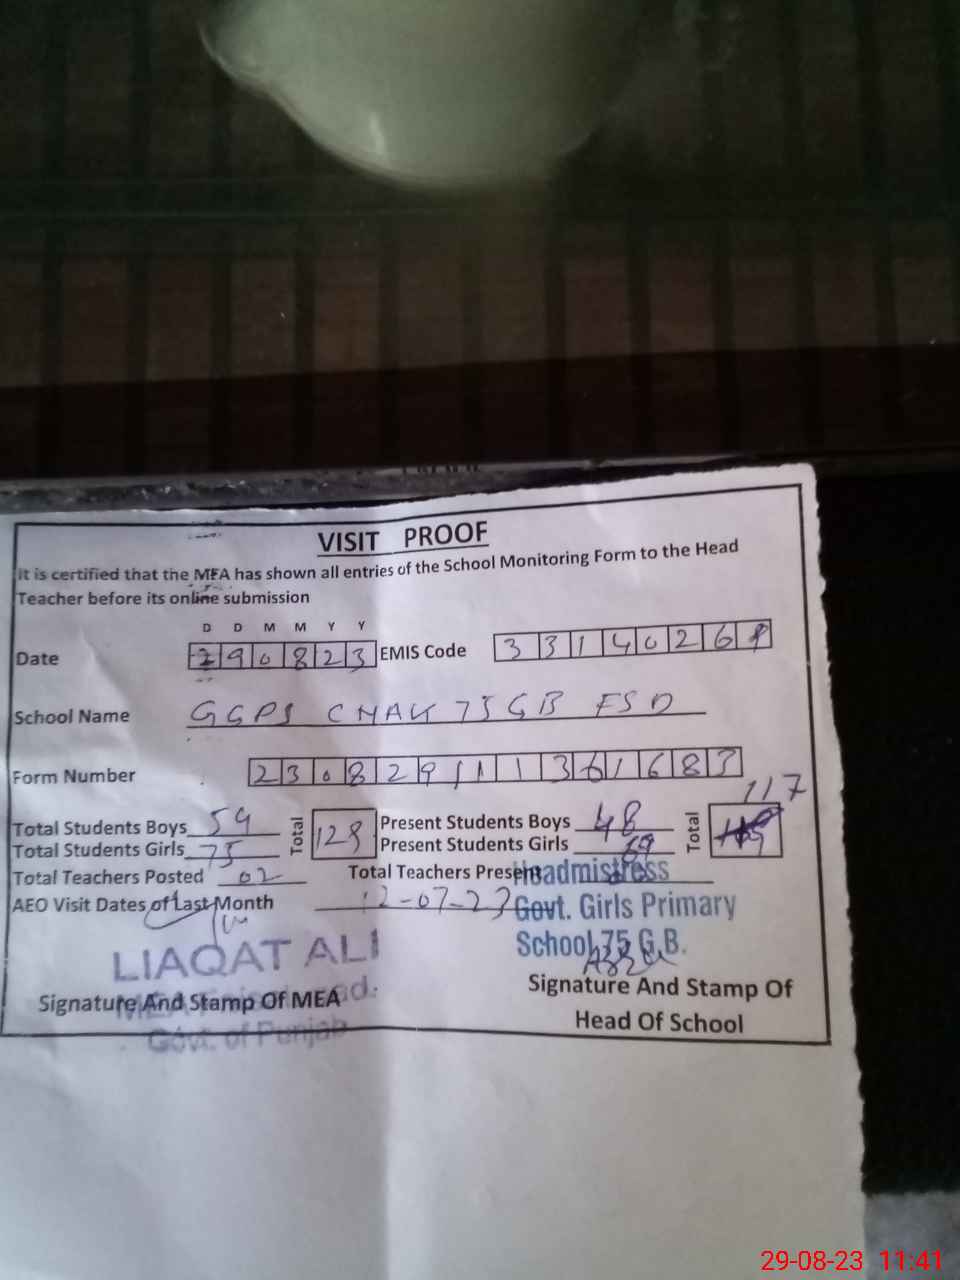 VISIT PROOF
It is certified that the MEA has shown all entries of the School Monitoring Form to the Head
Teacher before its online submission
D D M M Y Y
Date 290823 EMIS Code 3314026
School Name GGPS CHAK 75 GB FSD
Form Number 230829111361683
Total Students Boys 54 Total 129 Present Students Boys 48 Total 117
Total Students Girls 75 Present Students Girls 69
Total Teachers Posted 02 Total Teachers Present
AEO Visit Dates of Last Month 12-07-23
Headmistress
Govt. Girls Primary
School 75 G.B.
LIAQAT ALI
MEA
Govt. of Punjab
Signature And Stamp Of MEA
Signature And Stamp Of
Head Of School
29-08-23 11:41